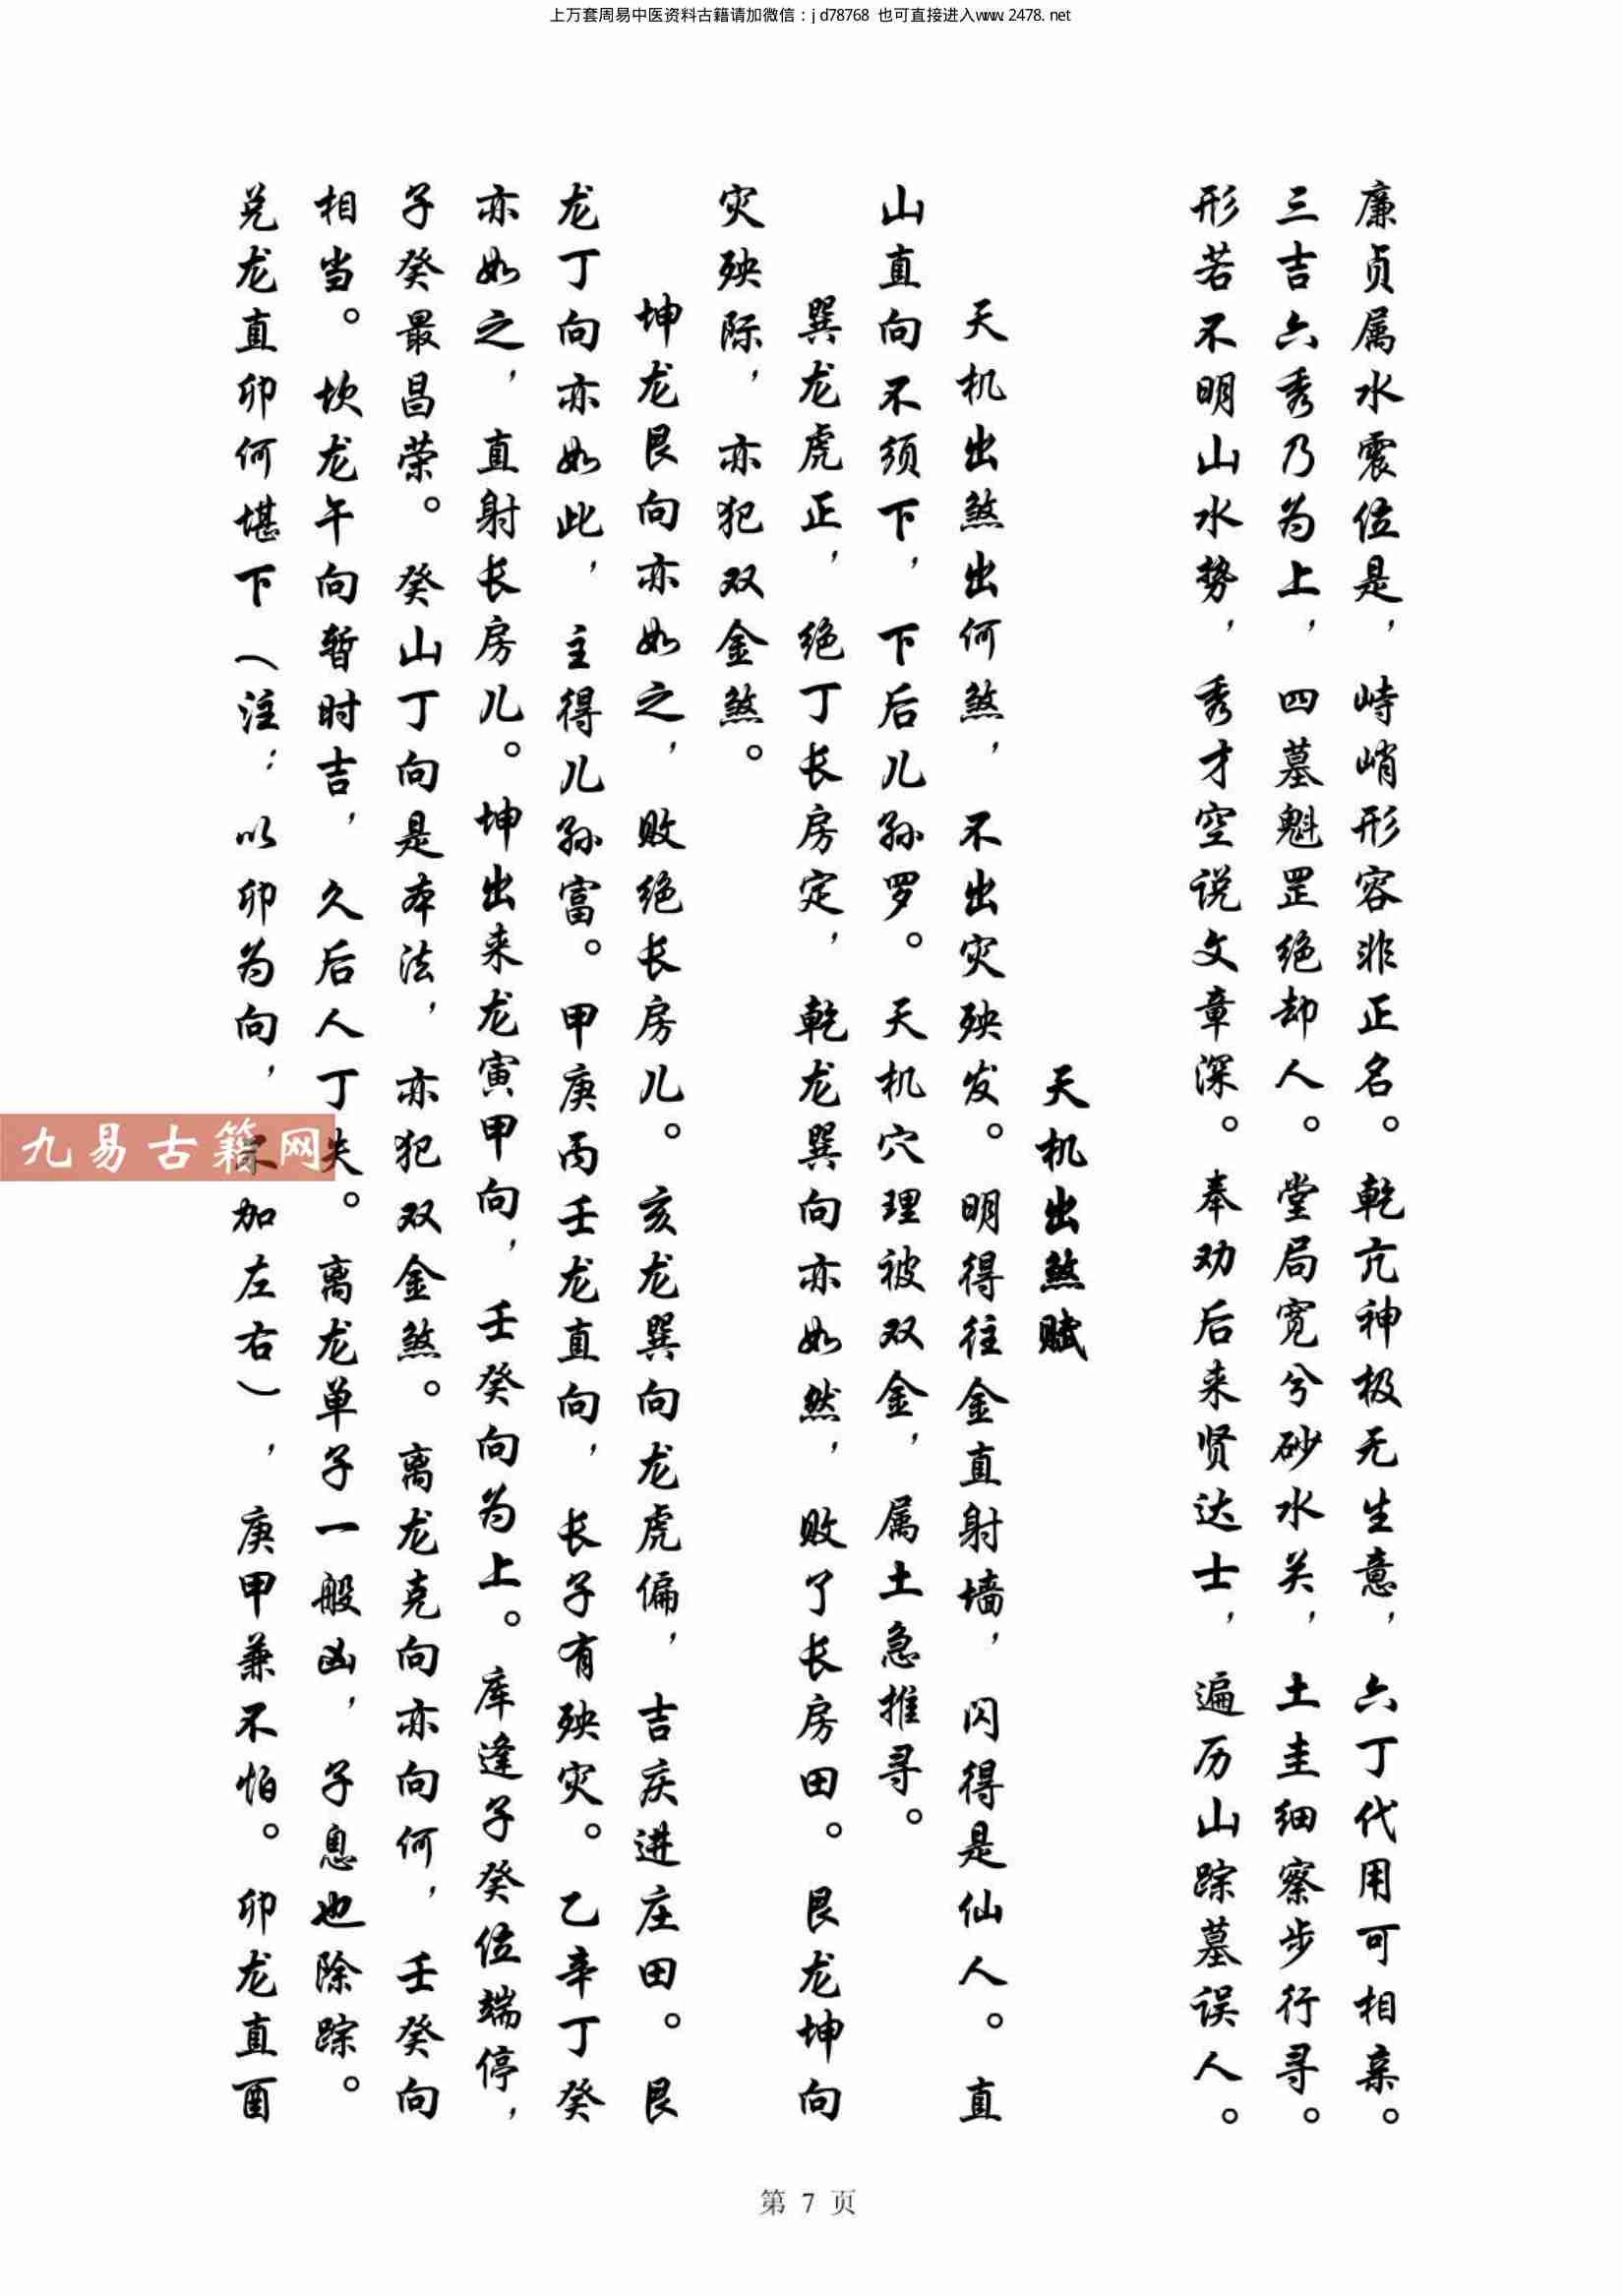 上万套周易中医资料古籍请加微信：jd78768 也可直接进入www.2478.net
廉贞属水震位是，峙峭形容非正名。乾亢神极无生意，六丁代用可相亲。
三吉六秀乃为上，四墓魁罡绝却人。堂局宽兮砂水关，土圭细察步行寻。
形若不明山水势，秀才空说文章深。奉劝后来贤达士，遍历山踪墓误人。
天机出煞赋
天机出煞出何煞，不出灾殃发。明得往金直射墙，闪得是仙人。直
山直向不须下，下后儿孙罗。天机穴理被双金，属土急推寻。
巽龙虎正，绝丁长房定，乾龙巽向亦如然，败了长房田。艮龙坤向
灾殃际，亦犯双金煞。
坤龙艮向亦如之，败绝长房儿。亥龙巽向龙虎偏，吉庆进庄田。艮
龙丁向亦如此，主得儿孙富。甲庚丙壬龙直向，长子有殃灾。乙辛丁癸
亦如之，直射长房儿。坤出来龙寅甲向，壬癸向为上。库逢子癸位端停，
子癸最昌荣。癸山丁向是本法，亦犯双金煞。离龙克向亦向何，壬癸向
相当。坎龙午向暂时吉，久后人丁失。离龙单子一般凶，子息也除踪。
兑龙直卯何堪下（注：以卯为向，不加左右），庚甲兼不怕。卯龙直酉
九易古籍网
第 7 页